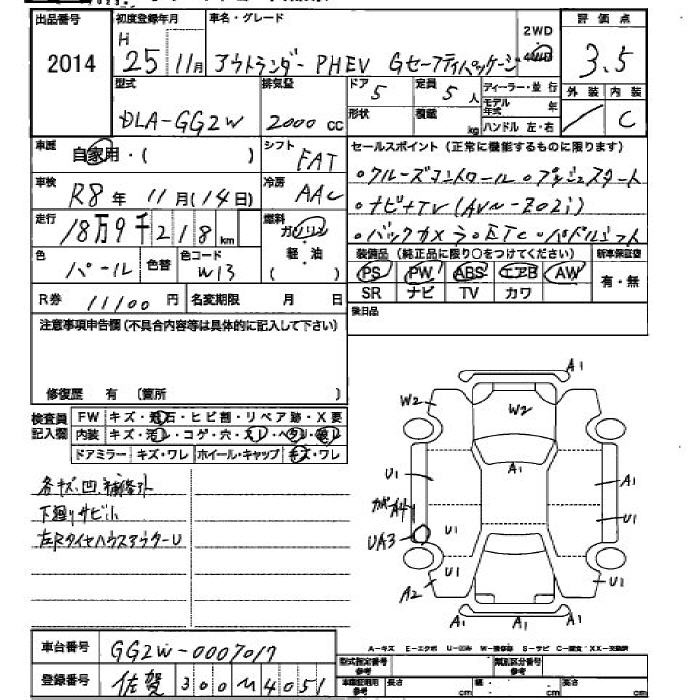 出品番号 初度登録年月 車名・グレード 2WD 評価点
2014 H 25 11月 アウトランダー PHEV Gセーフティパッケージ 4WD 3.5
型式 排気量 ドア 5 定員 5人 ディーラー・並行 外装 内装
DLA-GG2W 2000 cc 形状 積載 kg モデル年式 年 C
ハンドル 左・右
車歴 自家用・( ) シフト FAT セールスポイント(正常に機能するものに限ります)
車検 R8年 11月(14日) 冷房 AAC ・クルーズコントロール ・プッシュスタート
走行 18万9千218km 燃料 ガソリン 軽・油 ・ナビ+TV(AVN-Z02i)
・バックカメラ・ETC・パドルシフト
色 パール 色替 色コード W13 装備品(純正品に限り○をつけてください) 新車保証書
PS PW ABS エアB AW 有・無
R券 11100円 名変期限 月 日 SR ナビ TV カワ
注意事項申告欄(不具合内容等は具体的に記入して下さい) 後日品
修復歴 有(箇所 )
検査員記入欄 FW キズ・飛石・ヒビ割・リペア跡・X要
内装 キズ・汚レ・コゲ・穴・スレ・ヘタリ・破レ
ドアミラー キズ・ワレ ホイール・キャップ キズ・ワレ
各キズ、凹、補修外
下廻りサビ小
左RタイヤハウスアウターU
A1
W2 W2
A1
U1 A1
A4
U1 U1
UA3
U1
A2
A1
A-キズ E-エクボ U-凹み W-補修跡 S-サビ C-腐食 XX-交換済
車台番号 GG2W-0007017
登録番号 佐賀 300 M 4051
型式指定番号 参考 類別区分番号 参考
車庫証明用 参考 長さ cm 幅 cm 高さ cm